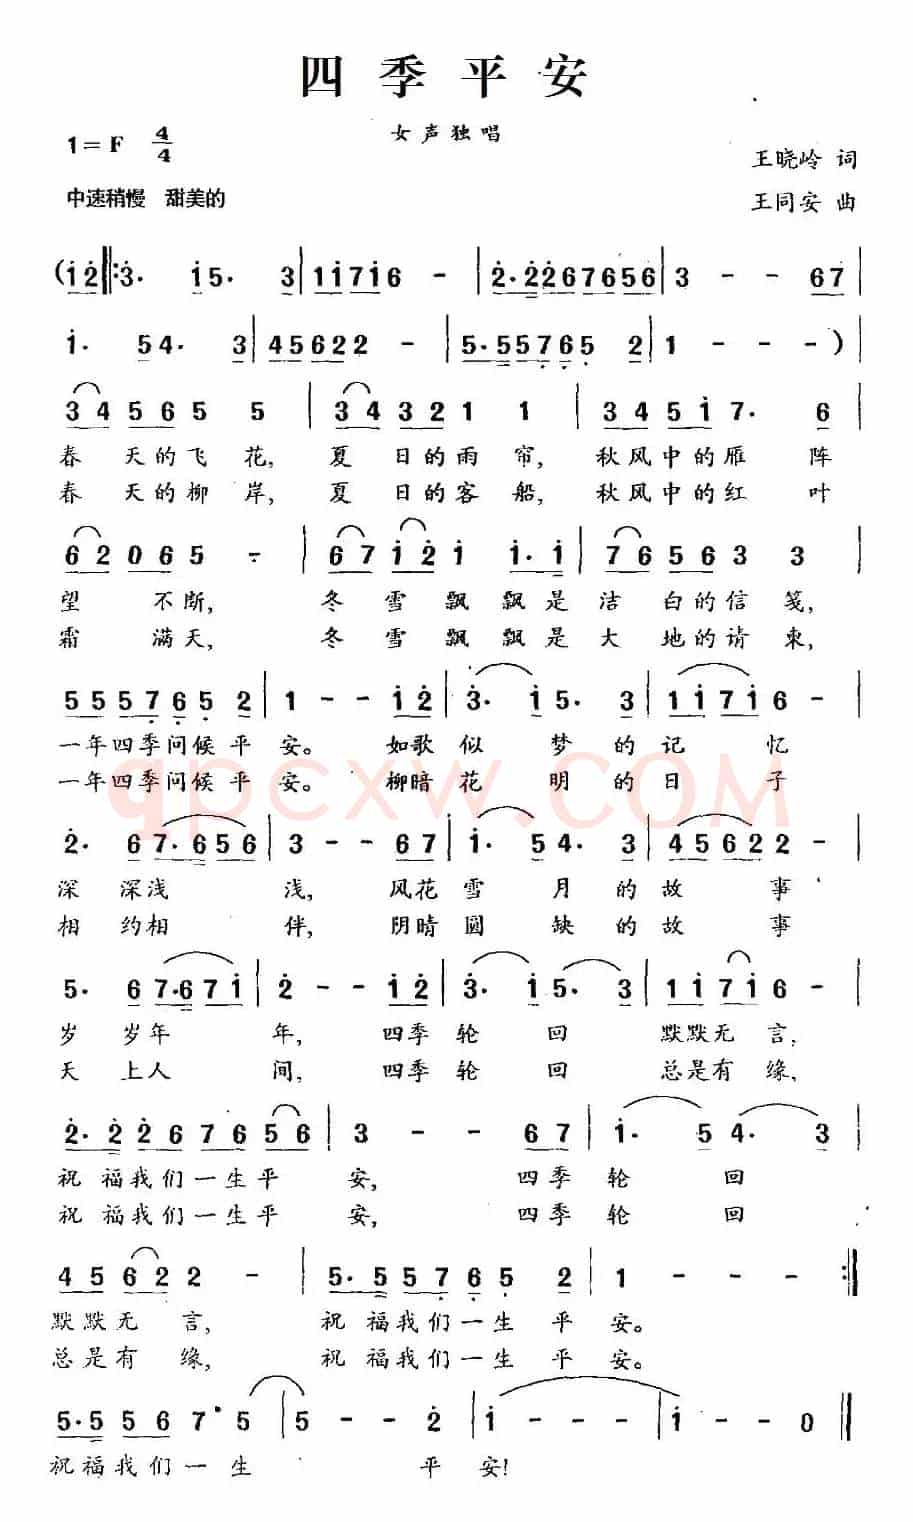 四季平安
女声独唱
1=F 4/4
王晓岭 词
中速稍慢 甜美的
王同安 曲
(i̇ 2̇ ‖: 3̇· i̇ 5· 3 | 1 i̇ 7 i̇ 6 - | 2̇· 2̇ 2̇ 6 7 6 5 6 | 3 - - 6 7 |
i̇· 5 4· 3 | 4 5 6 2 2 - | 5· 5 5 7̣ 6̣ 5̣ 2 | 1 - - - ) |
3 4 5 6 5 5 | 3 4 3 2 1 1 | 3 4 5 i̇ 7· 6 |
春天的飞花, 夏日的雨帘, 秋风中的雁阵
春天的柳岸, 夏日的客船, 秋风中的红叶
6 2 0 6 5 - | 6 7 i̇ 2̇ i̇ i̇· i̇ | 7 6 5 6 3 3 |
望不断, 冬雪飘飘是洁白的信笺,
霜满天, 冬雪飘飘是大地的请柬,
5 5 5 7̣ 6̣ 5̣ 2 | 1 - - i̇ 2̇ | 3̇· i̇ 5· 3 | 1 i̇ 7 i̇ 6 - |
一年四季问候平安。 如歌似梦的记忆
一年四季问候平安。 柳暗花明的日子
qpcxw.com
2̇· 6 7· 6 5 6 | 3 - - 6 7 | i̇· 5 4· 3 | 4 5 6 2 2 - |
深深浅浅, 风花雪月的故事
相约相伴, 阴晴圆缺的故事
5· 6 7· 6 7 i̇ | 2̇ - - i̇ 2̇ | 3̇· i̇ 5· 3 | 1 i̇ 7 i̇ 6 - |
岁岁年年, 四季轮回 默默无言,
天上人间, 四季轮回 总是有缘,
2̇· 2̇ 2̇ 6 7 6 5 6 | 3 - - 6 7 | i̇· 5 4· 3 |
祝福我们一生平安, 四季轮回
祝福我们一生平安, 四季轮回
4 5 6 2 2 - | 5· 5 5 7̣ 6̣ 5̣ 2 | 1 - - - :‖
默默无言, 祝福我们一生平安。
总是有缘, 祝福我们一生平安。
5· 5 5 6 7· 5 | 5 - - 2̇ | i̇ - - - | i̇ - - 0 ‖
祝福我们一生平安!